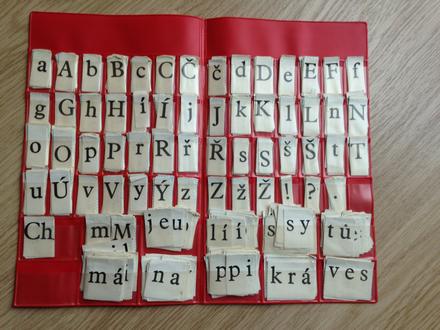 a A b B c C Č č d D e E F f
g G h H í Í j J k K l L n N
o O p P r R ř Ř s S š Š t T
u Ú v V y Ý z Z ž Ž ! ? .
Ch m M j e u l í í s s y t ů
m á n a p p i k r á v e s